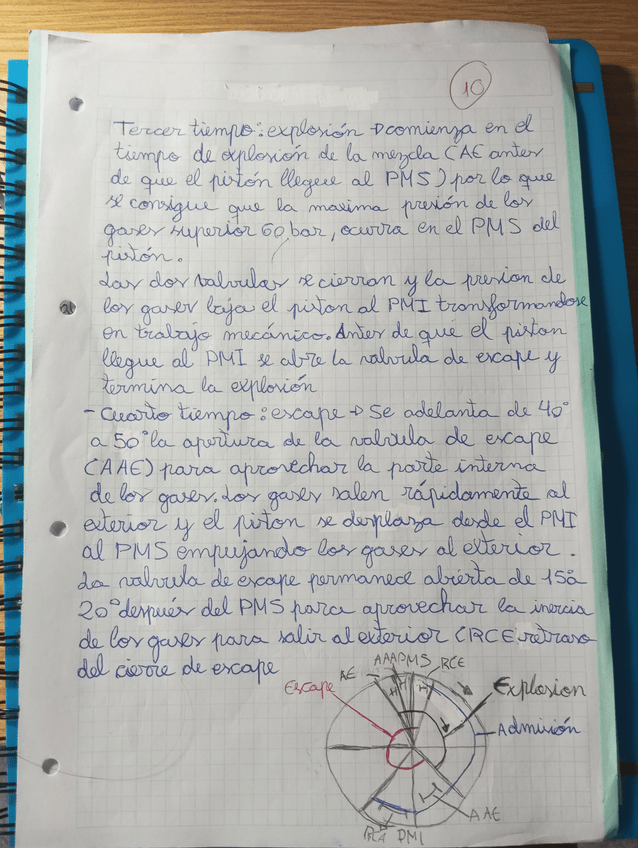 10
Tercer tiempo: explosión → comienza en el
tiempo de explosión de la mezcla (AE antes
de que el pistón llegue al PMS) por lo que
se consigue que la maxima presión de los
gases superior 60 bar, ocurra en el PMS del
pistón.
Las dos valvulas se cierran y la presion de
los gases baja el piston al PMI transformandose
en trabajo mecánico. Antes de que el piston
llegue al PMI se abre la valvula de escape y
termina la explosión
- Cuarto tiempo: escape → Se adelanta de 40°
a 50° la apertura de la valvula de escape
(AAE) para aprovechar la parte interna
de los gases. Los gases salen rápidamente al
exterior y el piston se desplaza desde el PMI
al PMS empujando los gases al exterior.
La valvula de escape permanece abierta de 15 a
20° después del PMS para aprovechar la inercia
de los gases para salir al exterior (RCE retraso
del cierre de escape
AE AAA PMS RCE
Escape
Explosion
Admisión
AAE
RCA PMI